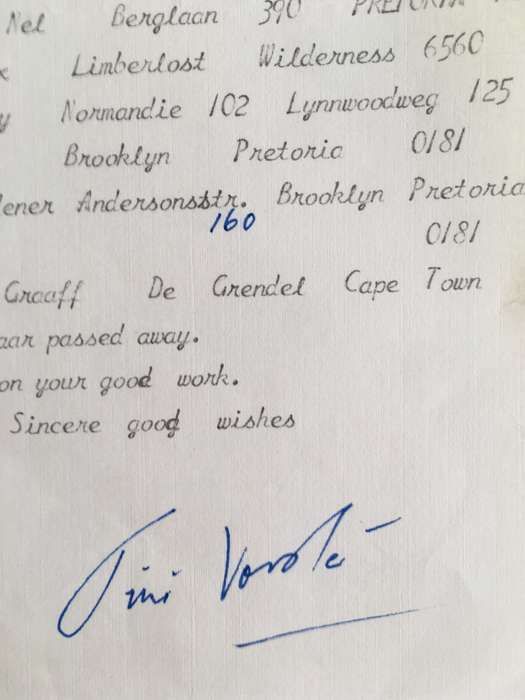 Nel Berglaan 390 PRETORIA
Limberlost Wilderness 6560
y Normandie 102 Lynnwoodweg 125
Brooklyn Pretoria 0181
ener Andersonsstr. Brooklyn Pretoria
160 0181
Graaff De Grendel Cape Town
aar passed away.
on your good work.
Sincere good wishes
Tini Vorster